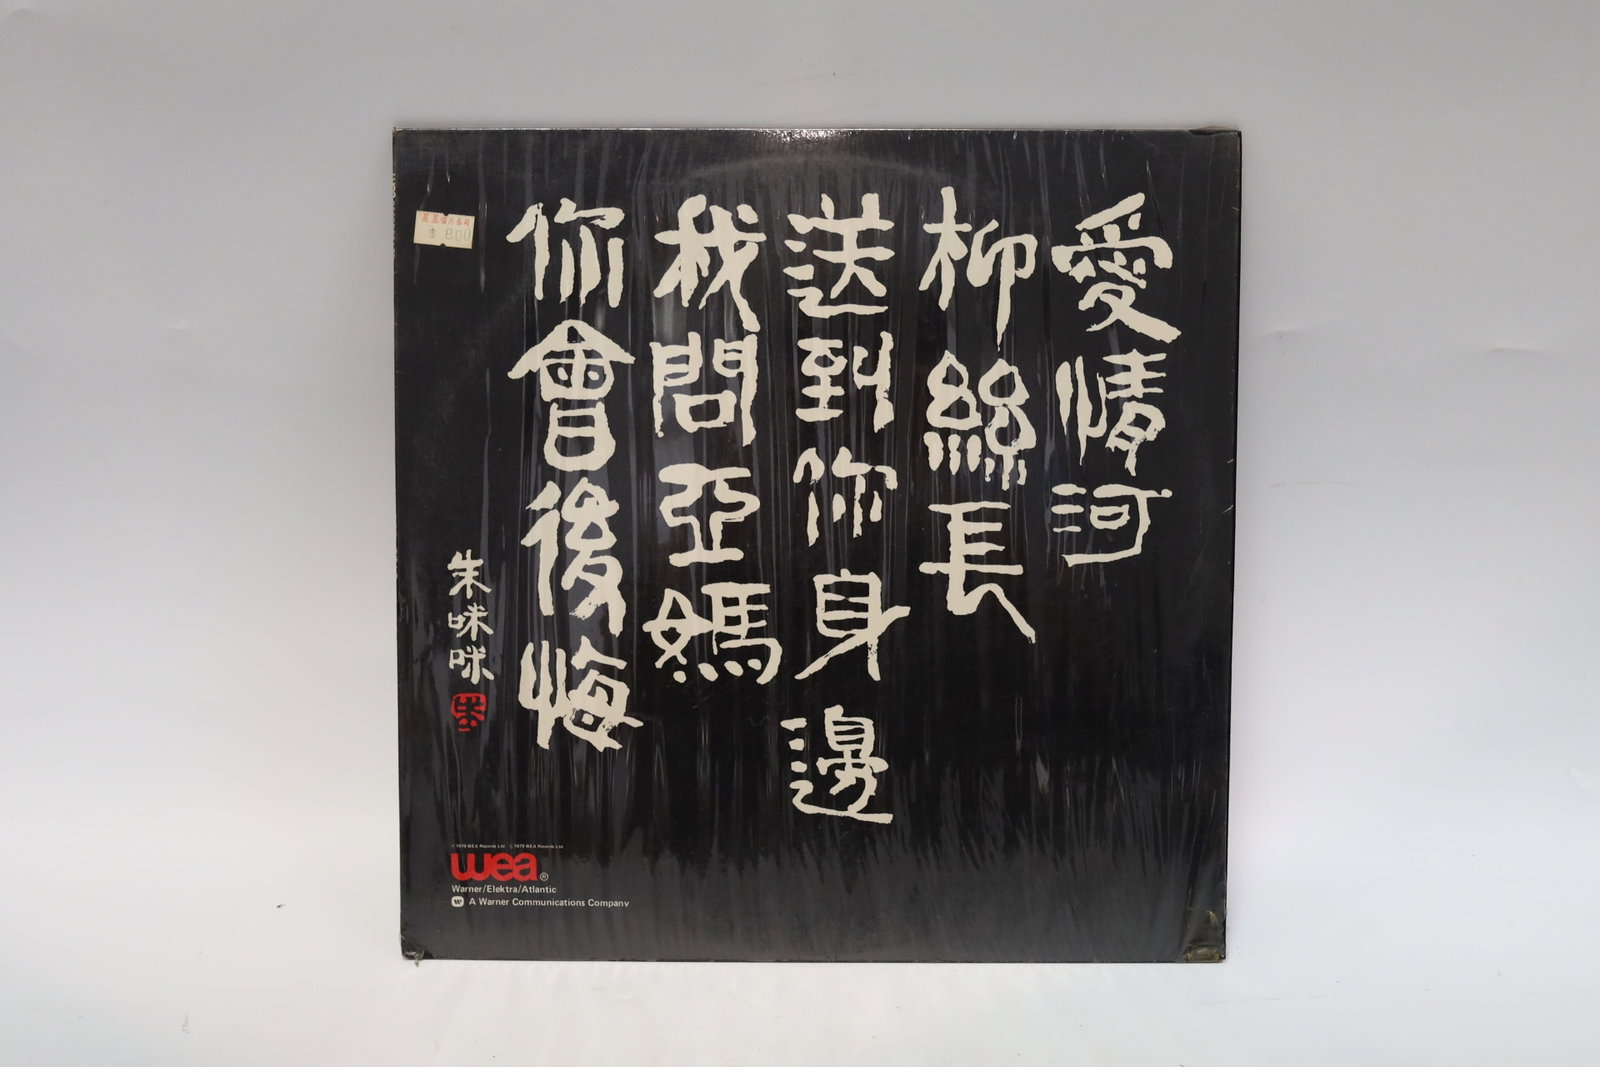 愛情河
柳絲長
送到你身邊
我問亞媽
你會後悔
朱咪咪
$ 8.00
℗ 1979 WEA Records Ltd. © 1979 WEA Records Ltd
wea®
Warner/Elektra/Atlantic
A Warner Communications Company